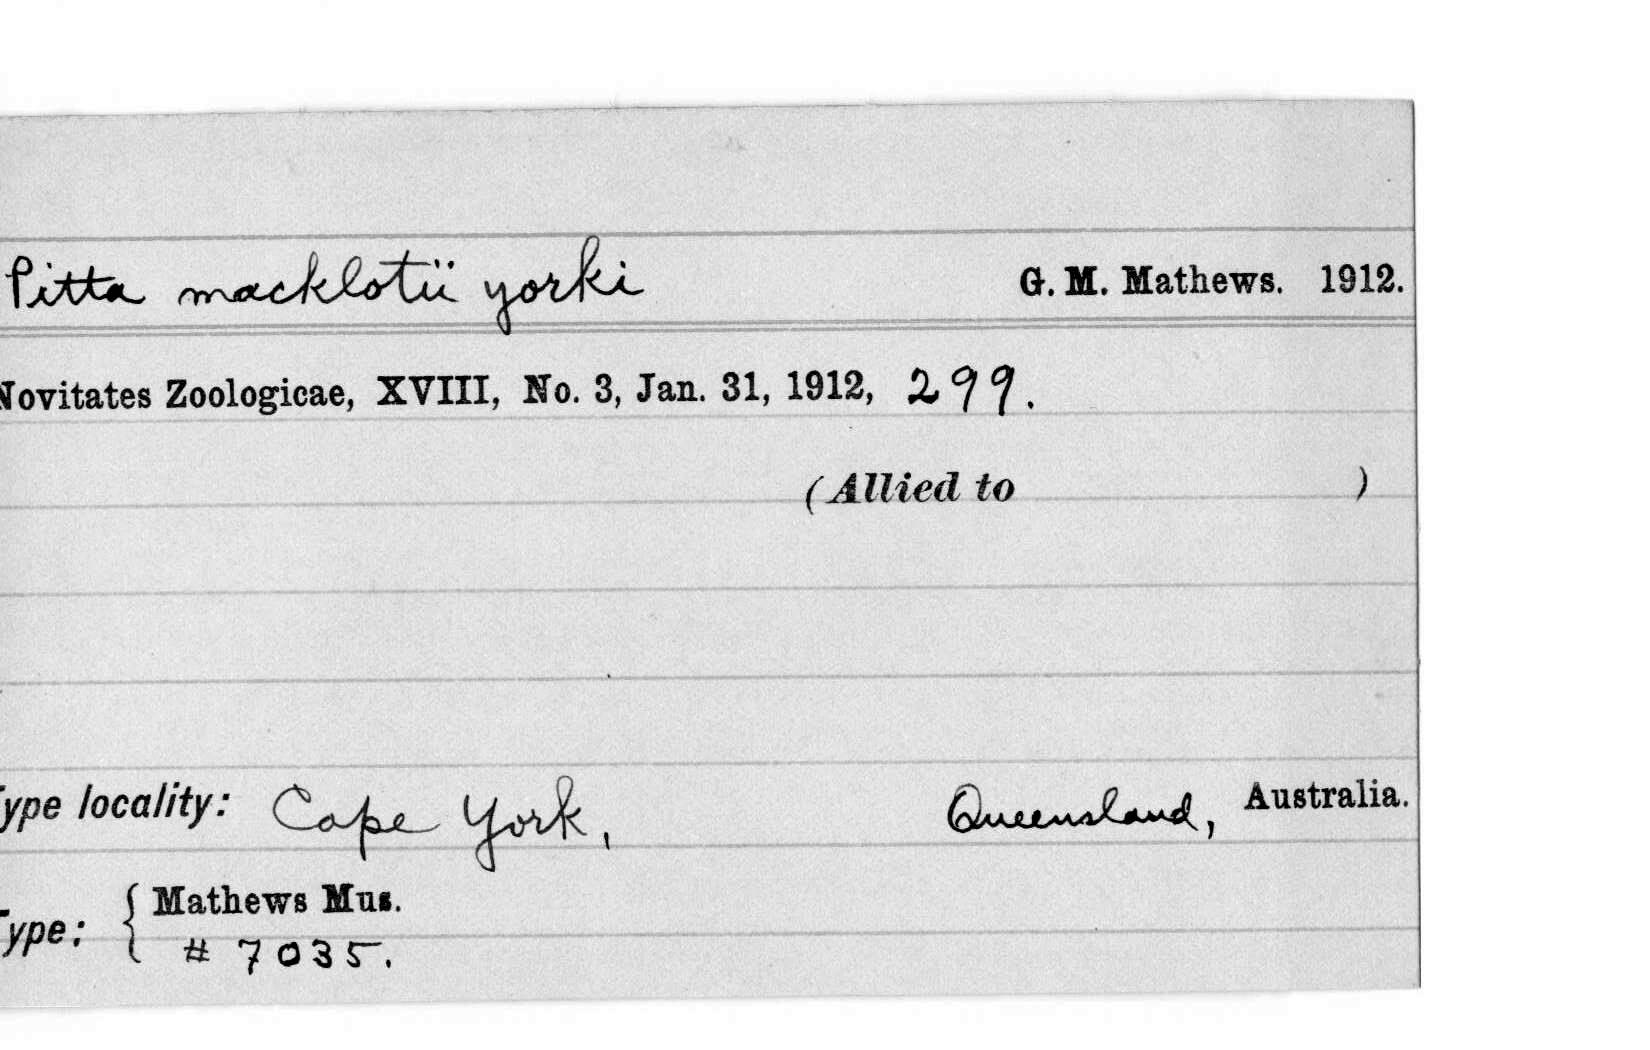 Pitta macklotii yorki G. M. Mathews. 1912.
Novitates Zoologicae, XVIII, No. 3, Jan. 31, 1912, 299.
(Allied to )
Type locality: Cape York, Queensland, Australia.
Type: { Mathews Mus.
# 7035.